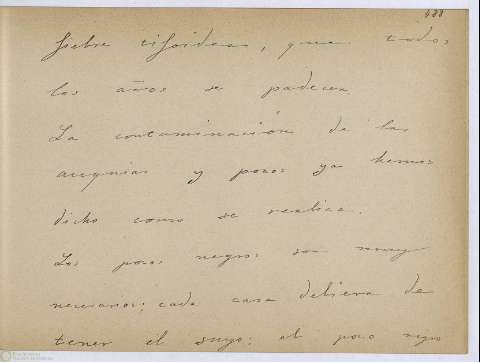 488
fiebre tifoidea, que todos
los años se padecen
La contaminación de las
y pozos ya hemos
dicho como se realiza.
Los pozos negros son muy
necesarios; cada casa debiera de
tener el suyo: el pozo negro